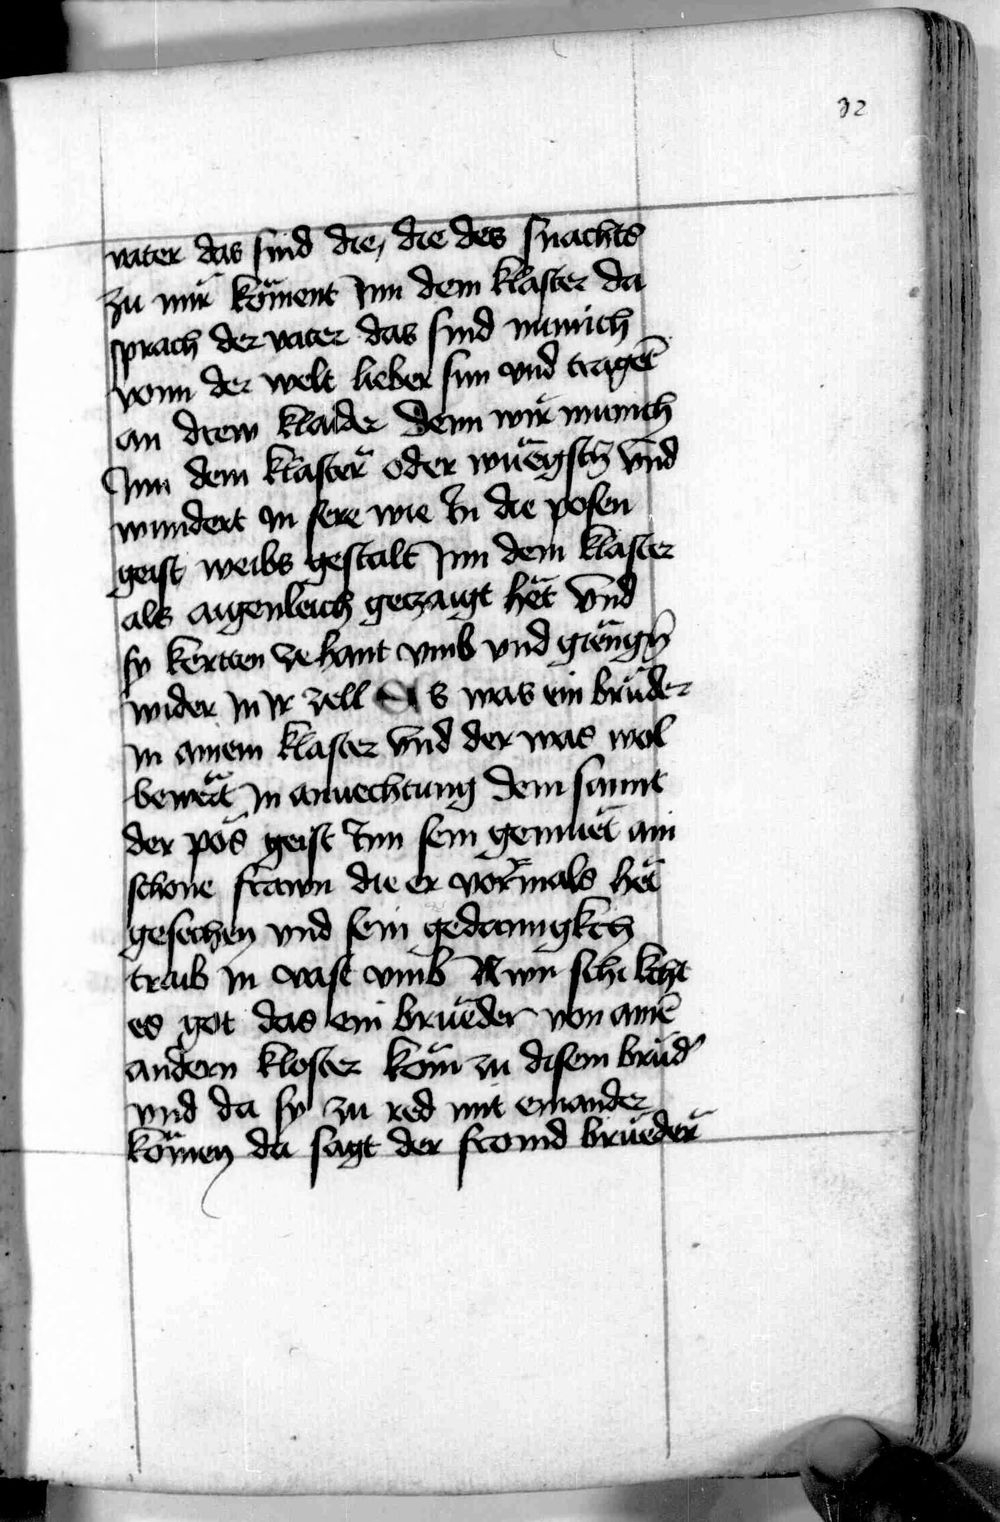 32
vater das sind die, die des snachts
zu mir köment Inn dem klaster da
sprach der vater das sind münich
vonn der welt lieber sun vnd tragēt
an diew klaider denn wir münich
Inn dem klaster oder wüegsth vnd
wundert in sere wie In die posen
geist weibs gestalt Inn dem klaster
als augenleich geczaigt het vnd
sy kertten ze hant vmb vnd giengn̄
wider in ir zell Es was ein brüder
in ainem klaster vnd der was wol
bewert in anuechtung dem sannt
der pös geist Inn sein gemuet ain
schone frawn die er vormals het
gesechen vnd sein gedannigkch
traib in vast vmb Nwn schikcht
es got das ein brueder von ainē
andern kloster kom zu disem brüd̕
vnd da sy zu red mit einander
kömen da sagt der fromd brueder